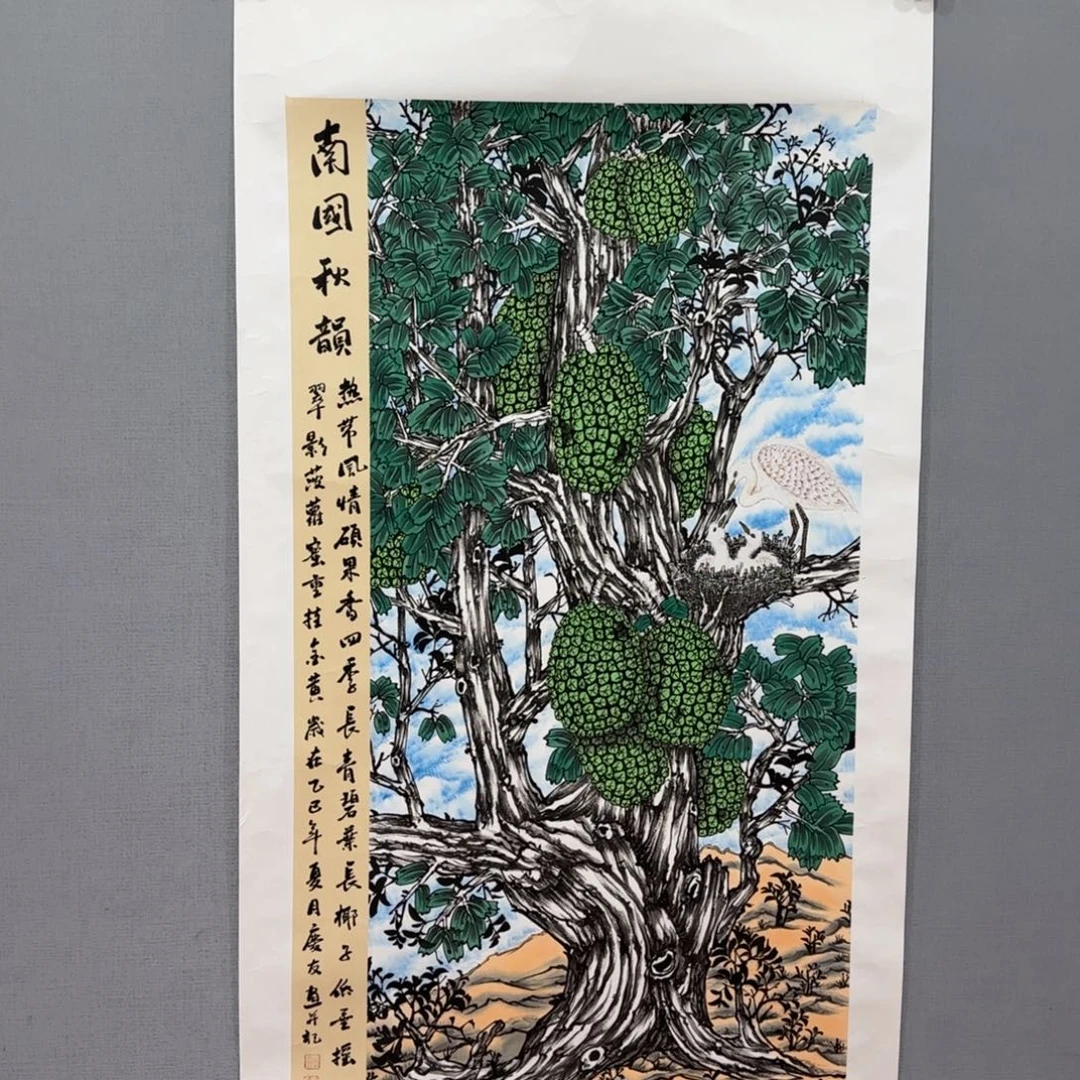 南國秋韻
熱带风情碩果香四季長青碧葉長椰子低垂摇
翠影菠蘿蜜重挂金黄歲在乙巳年夏月慶友画并記